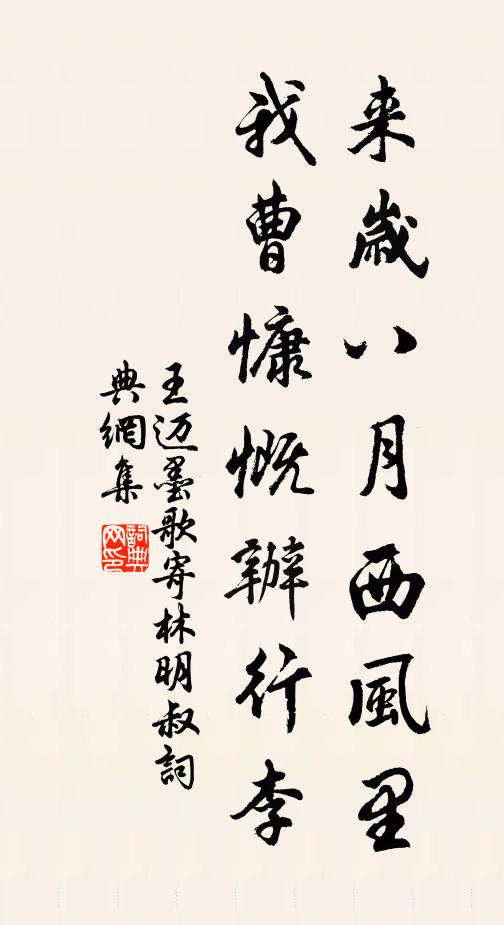 来歲八月西風里
我曹慷慨辦行李
王迈墨歌寄林明叔詞
典網集
詞典
网印